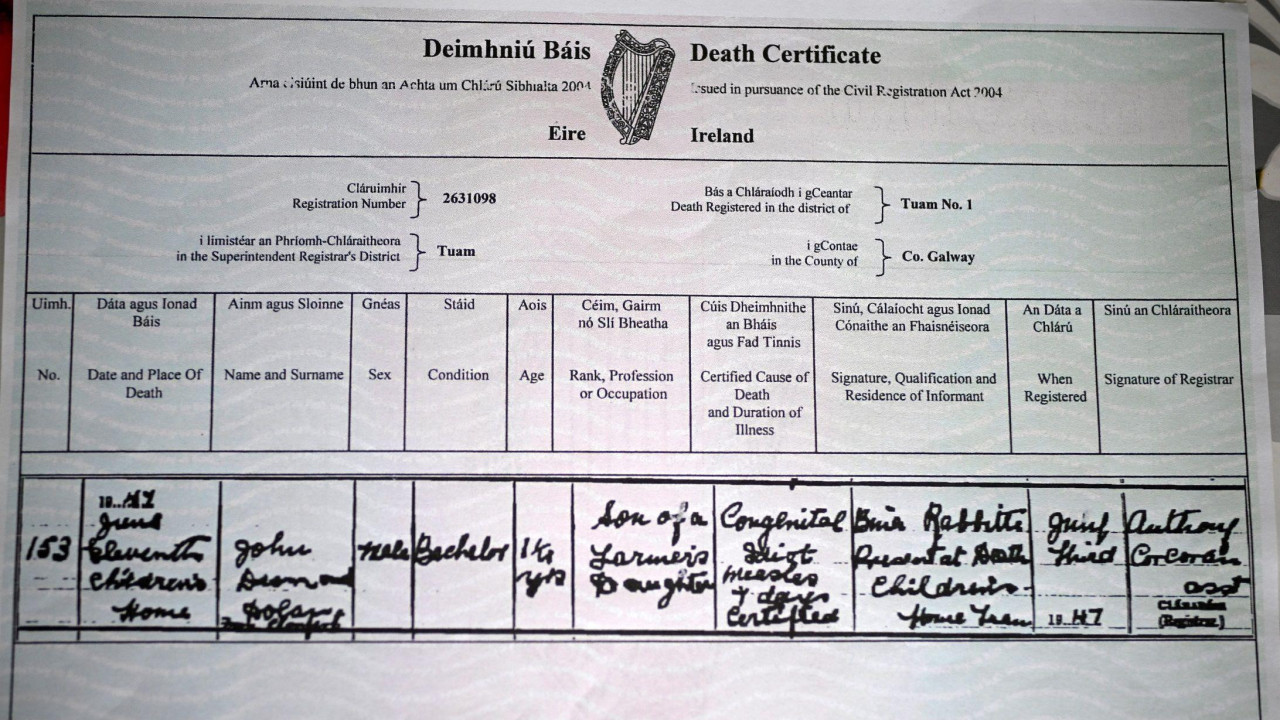 Deimhniú Báis
Death Certificate
Arna eisiúint de bhun an Achta um Chlárú Sibhialta 2004
Issued in pursuance of the Civil Registration Act 2004
Éire
Ireland
Cláruimhir
Registration Number
2631098
Bás a Chláraíodh i gCeantar
Death Registered in the district of
Tuam No. 1
i limistéar an Phríomh-Chláraitheora
in the Superintendent Registrar's District
Tuam
i gContae
in the County of
Co. Galway
Uimh.
No.
Dáta agus Ionad
Báis
Date and Place Of
Death
Ainm agus Sloinne
Name and Surname
Gnéas
Sex
Stáid
Condition
Aois
Age
Céim, Gairm
nó Slí Bheatha
Rank, Profession
or Occupation
Cúis Dheimhnithe
an Bháis
agus Fad Tinnis
Certified Cause of
Death
and Duration of
Illness
Sinú, Cálaíocht agus Ionad
Cónaithe an Fhaisnéiseora
Signature, Qualification and
Residence of Informant
An Dáta a
Chlárú
When
Registered
Sinú an Chláraitheora
Signature of Registrar
153
19..47
June
Eleventh
Children's
Home
John
Desmond
Dolan
male
Bachelor
yrs
Son of a
Farmer's
Daughter
Congenital
Idiot
Measles
7 days
Certified
Rabbitte
Present at Death
Children's
Home Tuam
Third
19..47
Anthony
Corcoran
asst
(Registrar.)